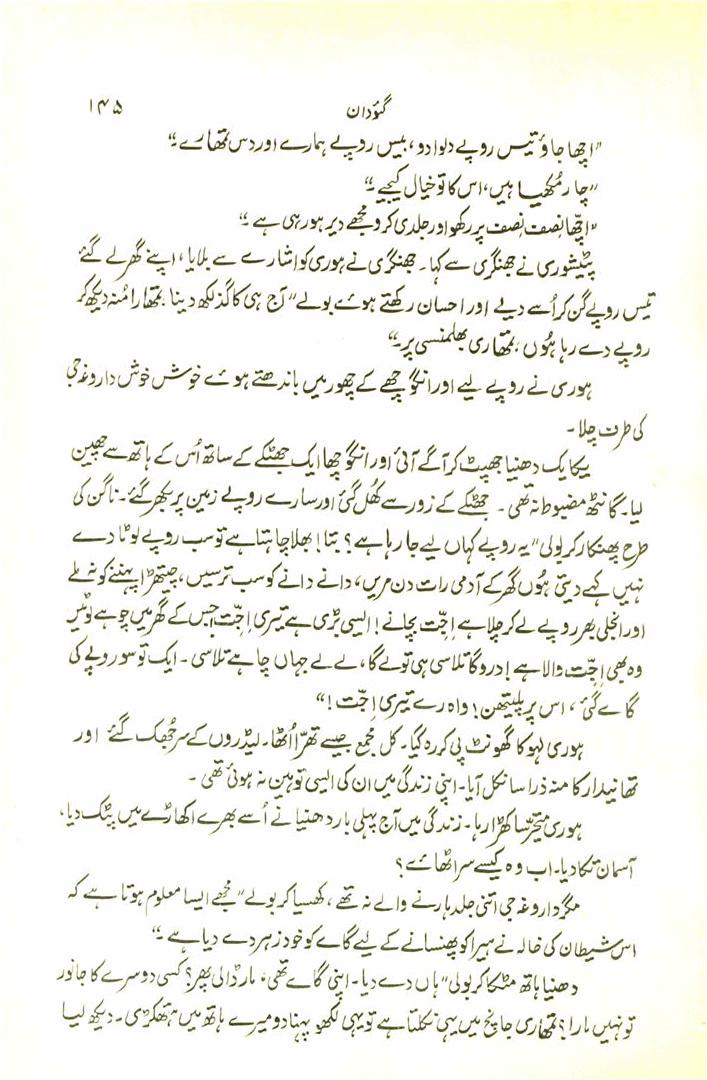 گئودان ۱۴۵
"اچھا جاؤ تیس روپے دلوا دو، بیس روپے ہمارے اور دس تمھارے۔"
"چار مُکھیا ہیں، اس کا تو خیال کیجیے۔"
"اچّھا نصف نصف پر رکھو اور جلدی کرو مجھے دیر ہو رہی ہے۔"
پٹیشوری نے جھنگری سے کہا۔ جھنگری نے ہوری کو اشارے سے بلایا، اپنے گھر لے گئے
تیس روپے گن کر اُسے دیے اور احسان رکھتے ہوئے بولے "آج ہی کاگد لکھ دینا۔ تمھارا مُنہ دیکھ کر
روپے دے رہا ہُوں، تمھاری بھلمنسی پر۔"
ہوری نے روپے لیے اور انگوچھے کے چھور میں باندھتے ہوئے خوش خوش داروغہ جی
کی طرف چلا۔
یکایک دھنیا جھپٹ کر آگے آئی اور انگوچھا ایک جھٹکے کے ساتھ اُس کے ہاتھ سے چھین
لیا۔ گانٹھ مضبوط نہ تھی۔ جھٹکے کے زور سے کھُل گئی اور سارے روپے زمین پر بکھر گئے۔ ناگن کی
طرح پھنکار کر بولی "یہ روپے کہاں لیے جا رہا ہے؟ بتا! بھلا چاہتا ہے تو سب روپے لوٹا دے
نہیں کہے دیتی ہُوں گھر کے آدمی رات دن مریں، دانے دانے کو سب ترسیں، چیتھڑا پہننے کو نہ ملے
اور انجلی بھر روپے لے کر چلا ہے اِجّت بچانے! ایسی بڑی ہے تیری اِجّت جس کے گھر میں چوہے لوٹیں
وہ بھی اِجّت والا ہے! دروگا تلاسی ہی تو لے گا، لے لے جہاں چاہے تلاسی۔ ایک تو سو روپے کی
گائے گئی، اس پر پلیتھن! واہ رے تیری اِجّت!"
ہوری لہو کا گھونٹ پی کر رہ گیا۔ کل مجمع جیسے تھرّا اُٹھا۔ لیڈروں کے سر جُھک گئے اور
تھانیدار کا منہ ذرا سا نکل آیا۔ اپنی زندگی میں ان کی ایسی توہین نہ ہوئی تھی۔
ہوری متحیّر سا کھڑا رہا۔ زندگی میں آج پہلی بار دھنیا نے اُسے بھرے اکھاڑے میں پٹک دیا،
آسمان تکا دیا۔ اب وہ کیسے سر اٹھائے؟
مگر داروغہ جی اتنی جلد ہارنے والے نہ تھے، کھسیا کر بولے "مجھے ایسا معلوم ہوتا ہے کہ
اس شیطان کی خالہ نے ہیرا کو پھنسانے کے لیے گائے کو خود زہر دے دیا ہے۔"
دھنیا ہاتھ مٹکا کر بولی "ہاں دے دیا۔ اپنی گائے تھی، مار ڈالی پھر؟ کسی دوسرے کا جانور
تو نہیں مارا؟ تمھاری جانچ میں یہی نکلتا ہے تو یہی لکھو پہنا دو میرے ہاتھ میں ہتھکڑی۔ دیکھ لیا